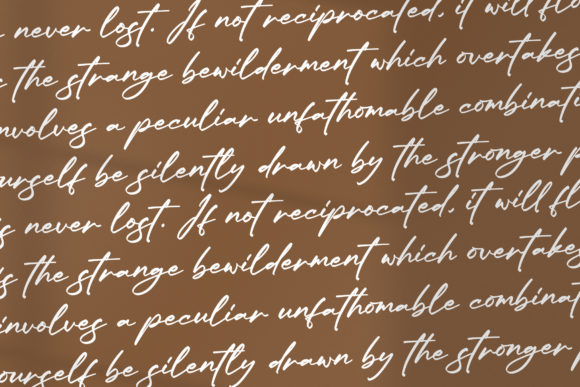 never lost. If not reciprocated, it will fl
the strange bewilderment which overtakes
involves a peculiar unfathomable combinati
ourself be silently drawn by the stronger p
s never lost. If not reciprocated, it will fl
is the strange bewilderment which overtakes
involves a peculiar unfathomable combinat
ourself be silently drawn by the stronger